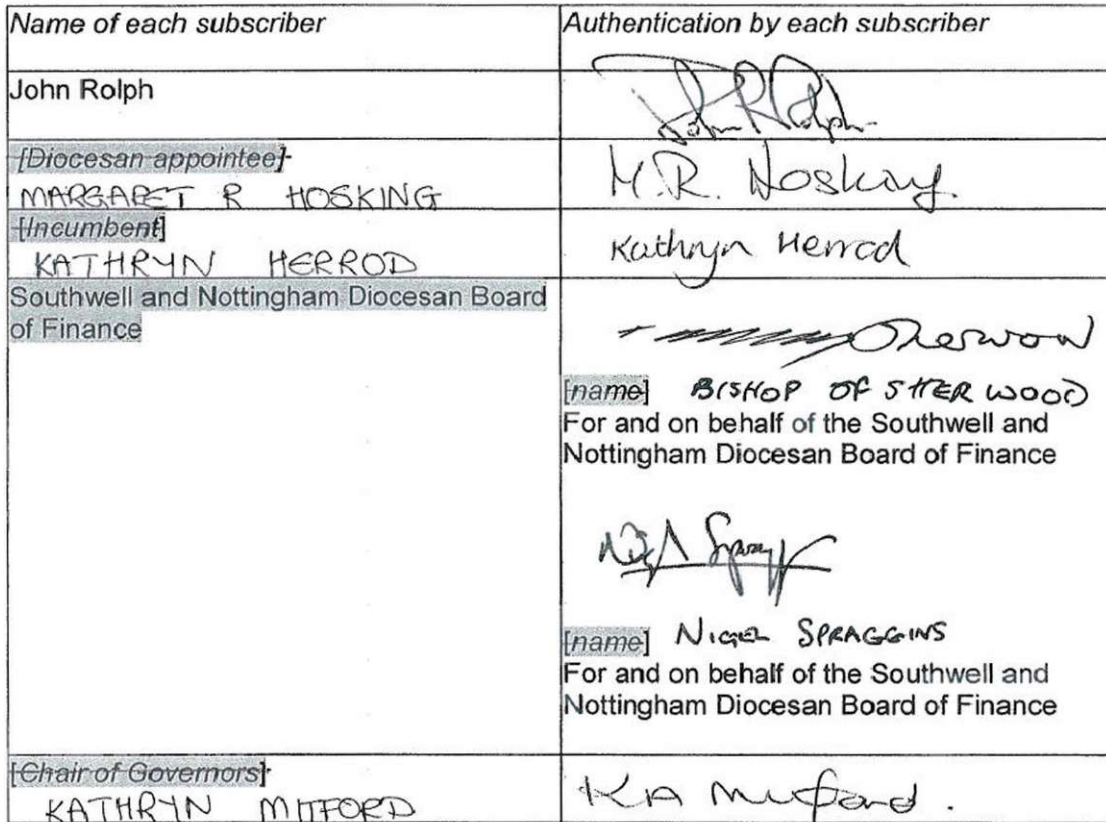 Name of each subscriber
Authentication by each subscriber
John Rolph
John R Rolph
[Diocesan appointee]
MARGARET R HOSKING
M.R. Hosking
[Incumbent]
KATHRYN HERROD
Kathryn Herrod
Southwell and Nottingham Diocesan Board
of Finance
Sherwood
[name] BISHOP OF SHERWOOD
For and on behalf of the Southwell and
Nottingham Diocesan Board of Finance
[name] NIGEL SPRAGGINS
For and on behalf of the Southwell and
Nottingham Diocesan Board of Finance
[Chair of Governors]
KATHRYN MITFORD
KA Mitford.